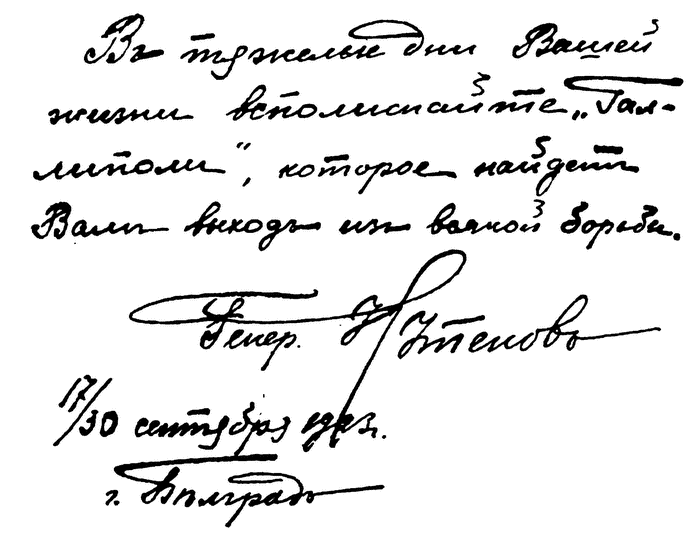 Въ тяжелые дни Вашей
жизни вспоминайте „Гал-
липоли“, которое найдетъ
Вамъ выходъ изъ всякой борьбы.
Генер.
17/30 сентября 1923 г.
г. Бѣлградъ